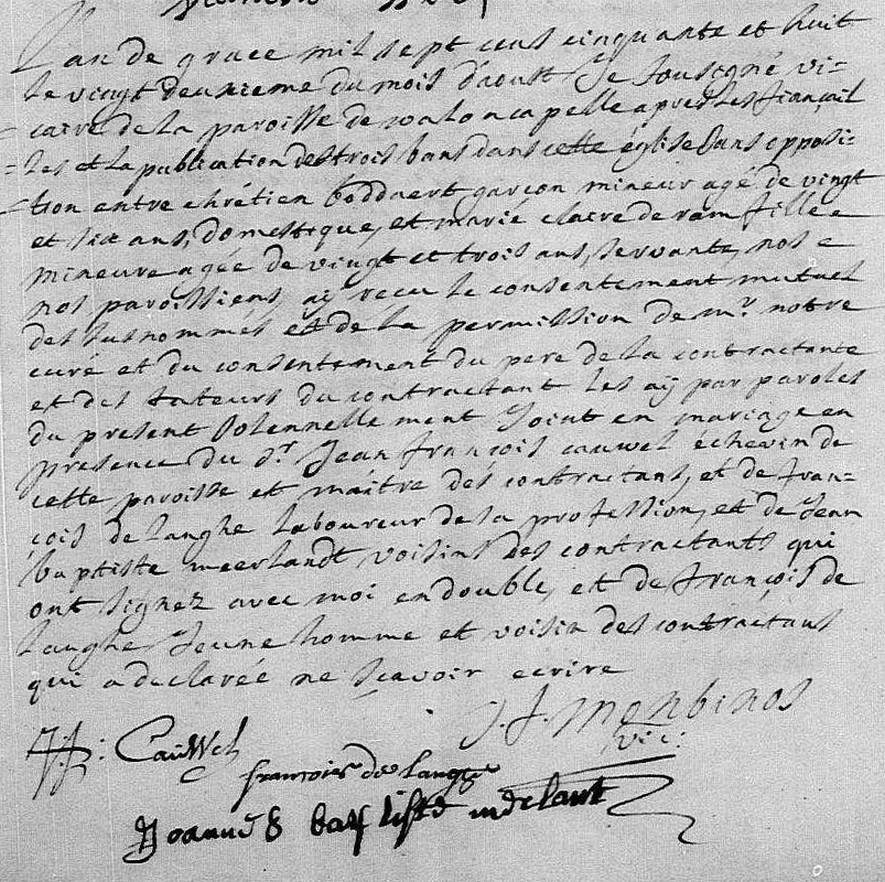 L'an de grace mil sept cens cinquante et huit
le vingt deuxieme du mois d'aoust Je sousigné vi=
caire de la paroisse de walon capelle apres les fiançail
=les et la publication des trois bans dans cette église sans opposi=
=tion entre chrétien boddaert garçon mineur agé de vingt
et six ans, domestique, et marie claire de ram fille
mineure agée de vingt et trois ans, servante,
nos paroissiens, aÿ recu le consentement mutuel
des susnommes et de la permission de mr. notre
curé et du consentement du pere de la contractante
et des tuteurs du contractant les aÿ par paroles
du present solennellement Joint en mariage en
presence du Sr. Jean françois cauwel échevin de
cette paroisse et maitre des contractans, et de fran=
çois de langhe laboureur de la profession, et de Jean
baptiste meerlandt voisins des contractants qui
ont signez avec moi en double, et de françois de
langhe Jeune homme et voisin des contractans
qui a declarée ne sçavoir ecrire
J. J. Monbinos
vic:
J.f: Cauwel
francois de langhe
Joannes baptiste